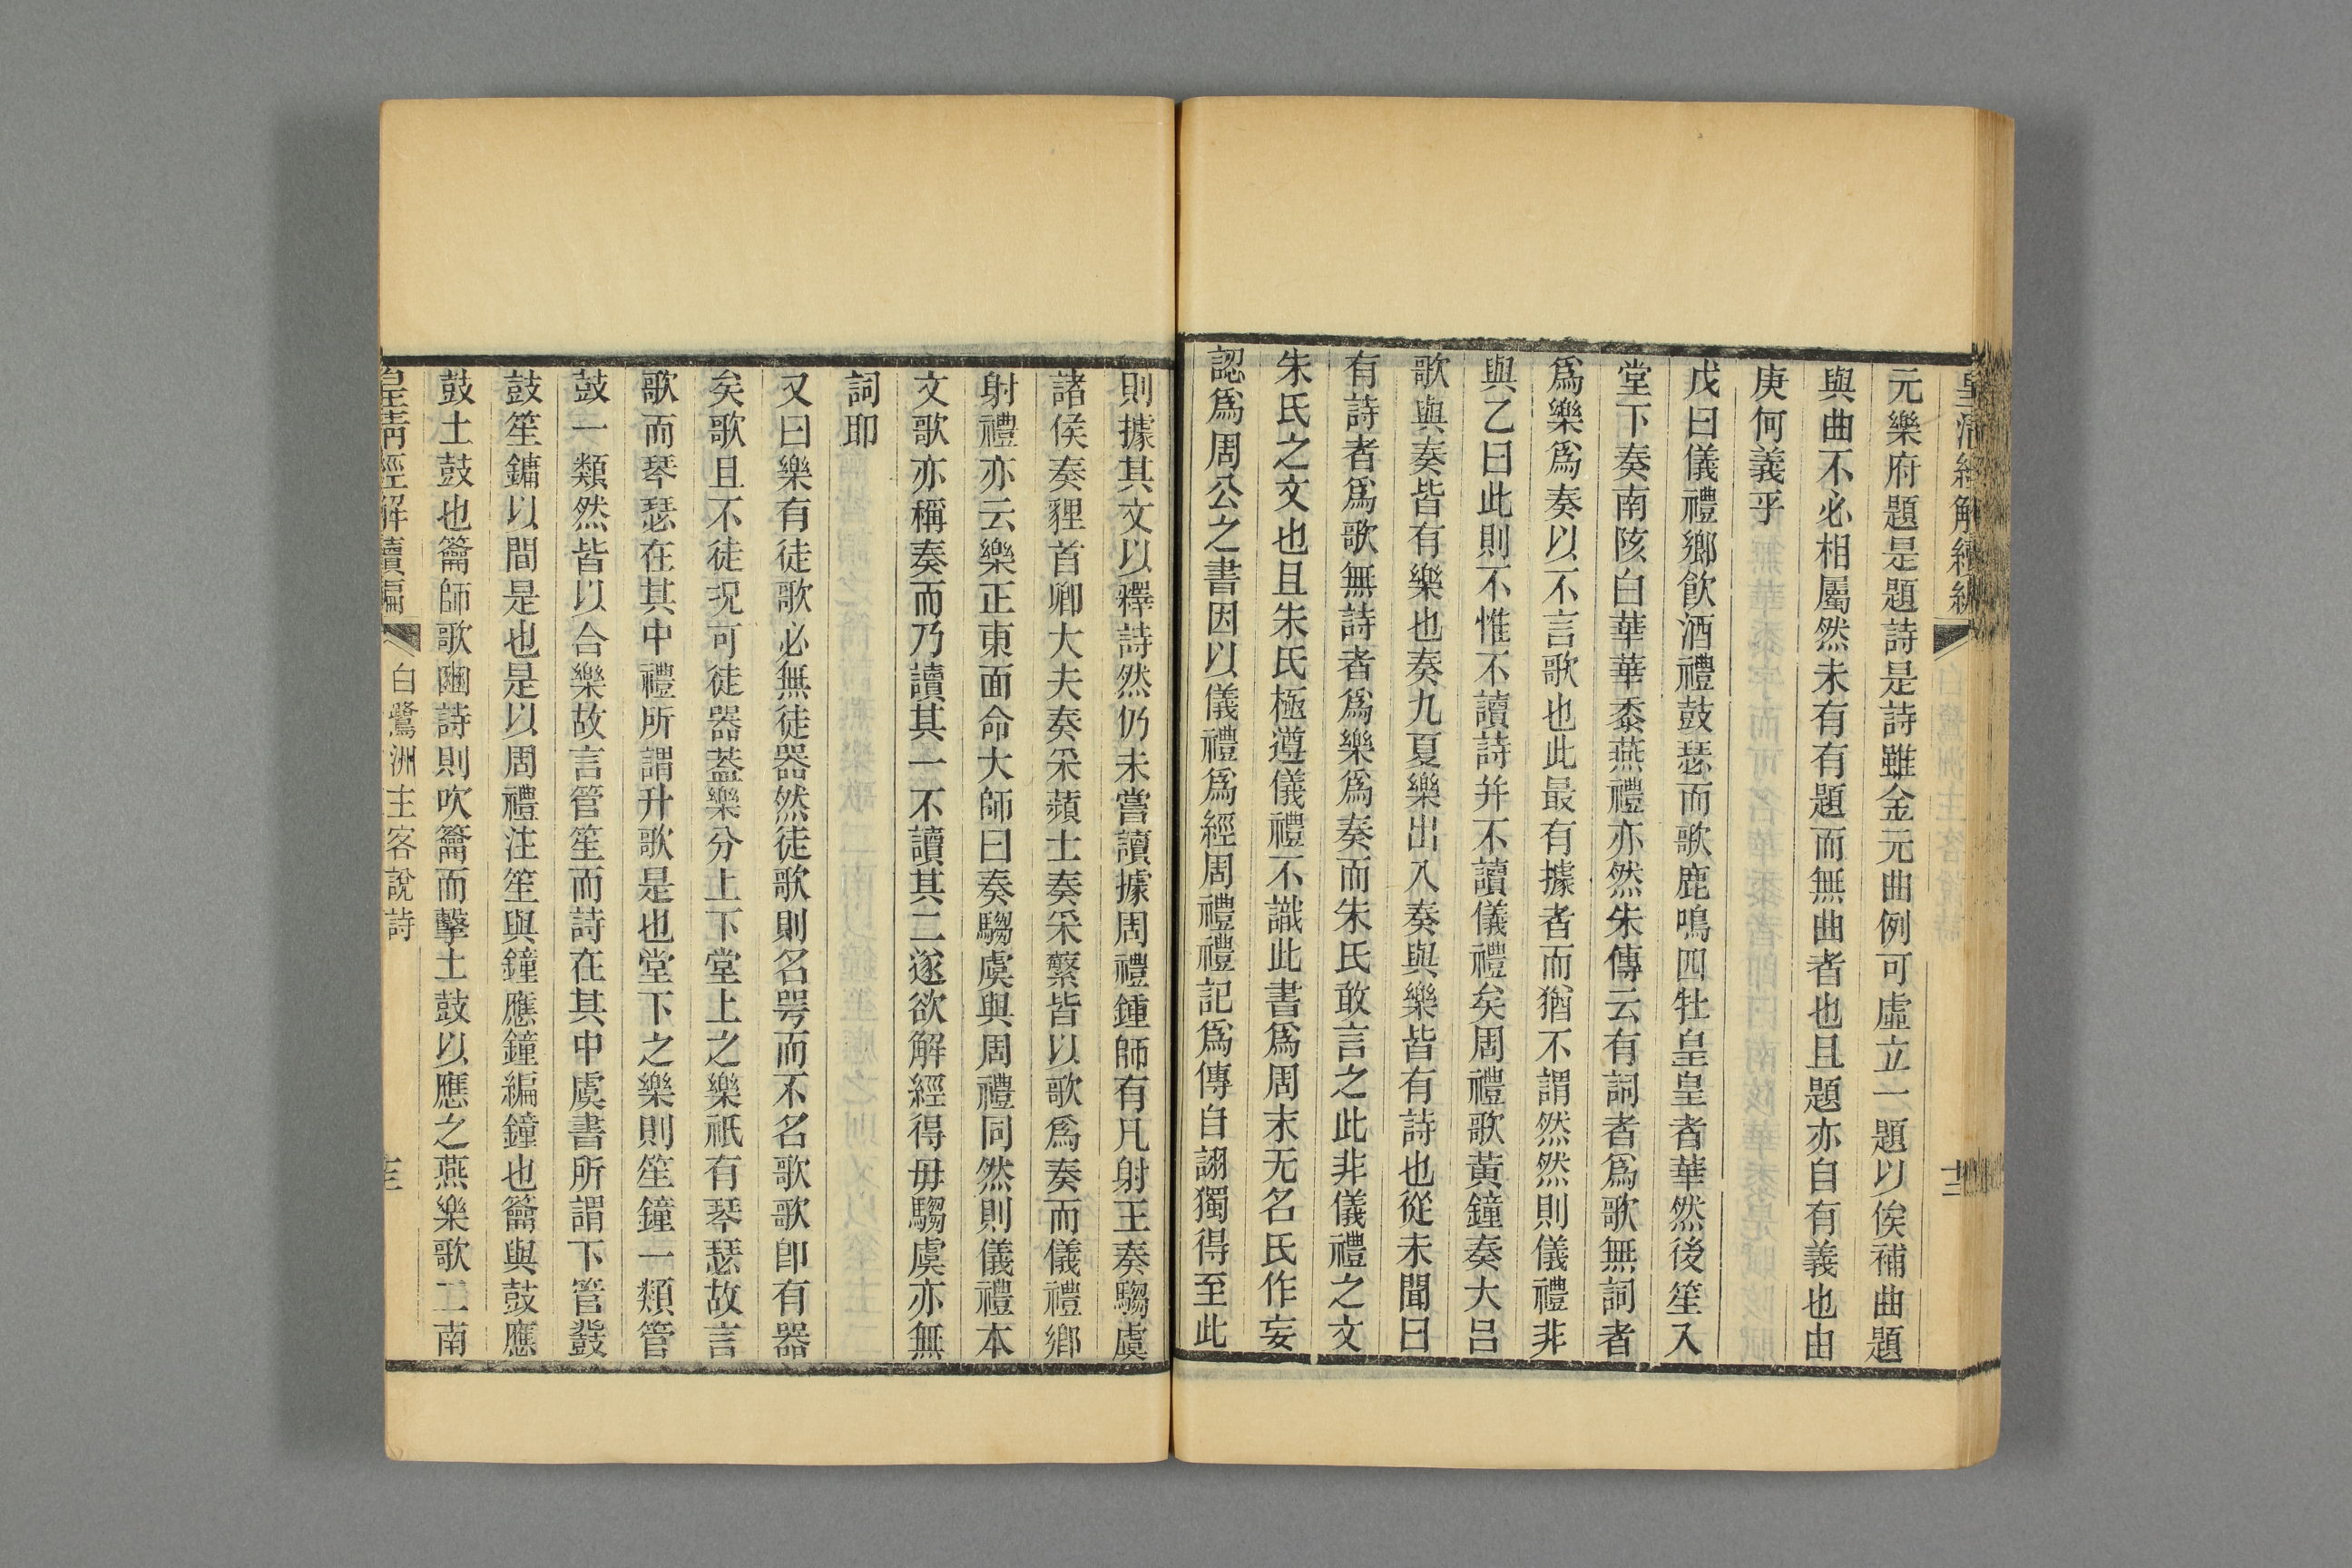 皇清經解續編
十二
元樂府題是題詩是詩雖金元曲例可虛立一題以俟補曲題
與曲不必相屬然未有有題而無曲者也且題亦自有義也由
庚何義乎
戊曰儀禮鄉飲酒禮鼓瑟而歌鹿鳴四牡皇皇者華然後笙入
堂下奏南陔白華華黍燕禮亦然朱傳云有詞者爲歌無詞者
爲樂爲奏以不言歌也此最有據者而猶不謂然然則儀禮非
與乙曰此則不惟不讀詩幷不讀儀禮矣周禮歌黃鐘奏大呂
歌與奏皆有樂也奏九夏樂出入奏與樂皆有詩也從未聞曰
有詩者爲歌無詩者爲樂爲奏而朱氏敢言之此非儀禮之文
朱氏之文也且朱氏極遵儀禮不識此書爲周末无名氏作妄
認爲周公之書因以儀禮爲經周禮禮記爲傳自詡獨得至此
則據其文以釋詩然仍未嘗讀據周禮鍾師有凡射王奏騶虞
諸侯奏貍首卿大夫奏采蘋士奏采蘩皆以歌爲奏而儀禮鄉
射禮亦云樂正東面命大師曰奏騶虞與周禮同然則儀禮本
文歌亦稱奏而乃讀其一不讀其二遂欲解經得毋騶虞亦無
詞耶
又曰樂有徒歌必無徒器然徒歌則名咢而不名歌歌卽有器
矣歌且不徒況可徒器蓋樂分上下堂上之樂祇有琴瑟故言
歌而琴瑟在其中禮所謂升歌是也堂下之樂則笙鐘一類管
鼓一類然皆以合樂故言管笙而詩在其中虞書所謂下管鼗
鼓笙鏞以間是也是以周禮注笙與鐘應鐘編鐘也籥與鼓應
鼓土鼓也籥師歌豳詩則吹籥而擊土鼓以應之燕樂歌二南
皇清經解續編
白鷺洲主客說詩